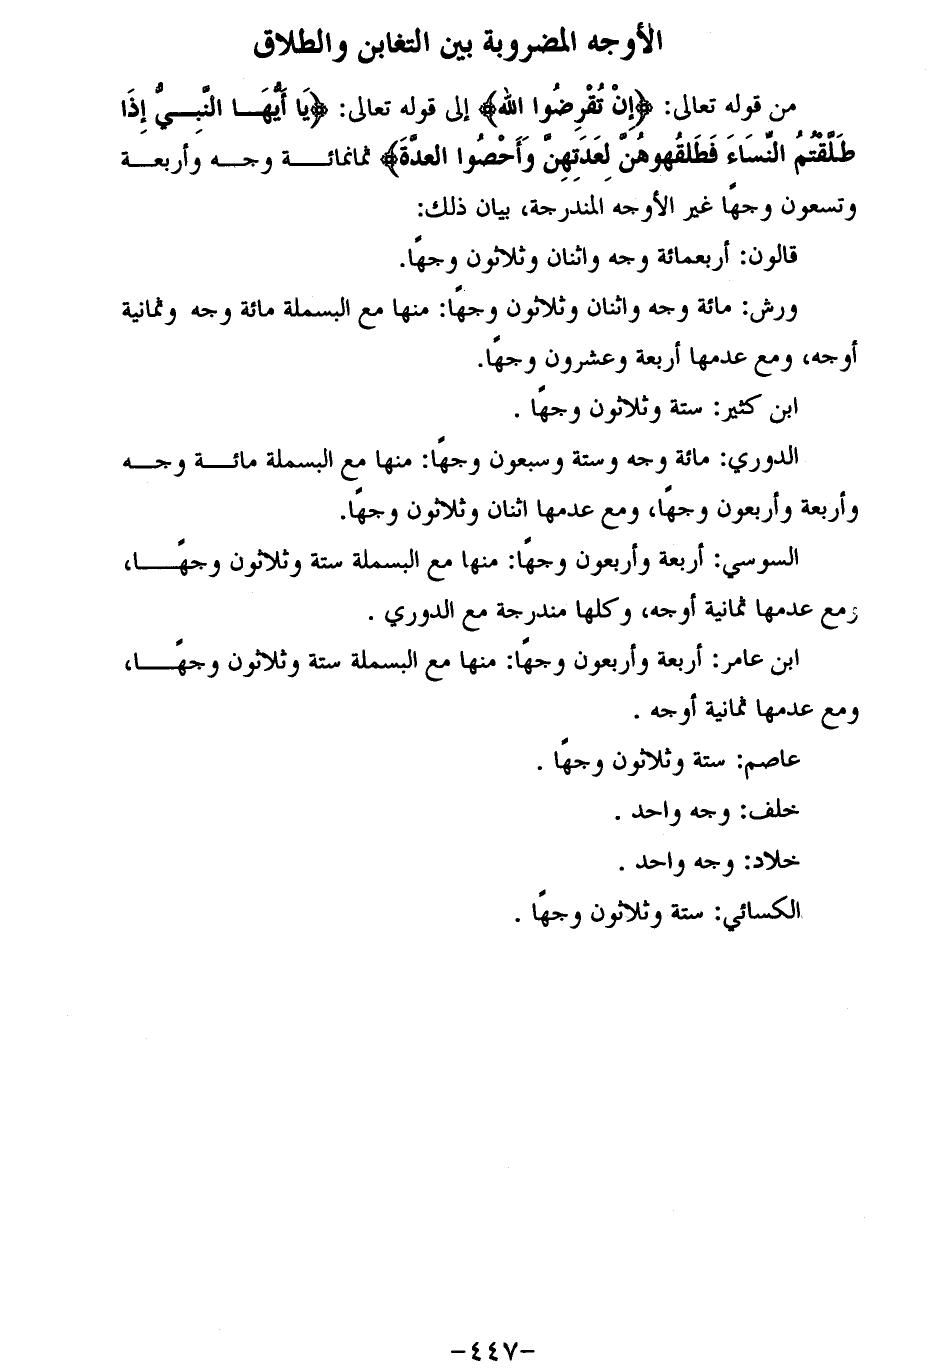 الأوجه المضروبة بين التغابن والطلاق
من قوله تعالى: ﴿إِنْ تُقْرِضُوا اللهَ﴾ إلى قوله تعالى: ﴿يَا أَيُّهَا النَّبِيُّ إِذَا
طَلَّقْتُمُ النِّسَاءَ فَطَلِّقُوهُنَّ لِعِدَّتِهِنَّ وَأَحْصُوا العِدَّةَ﴾ ثمانمائة وجه وأربعة
وتسعون وجهًا غير الأوجه المندرجة، بيان ذلك:
قالون: أربعمائة وجه واثنان وثلاثون وجهًا.
ورش: مائة وجه واثنان وثلاثون وجهًا: منها مع البسملة مائة وجه وثمانية
أوجه، ومع عدمها أربعة وعشرون وجهًا.
ابن كثير: ستة وثلاثون وجهًا .
الدوري: مائة وجه وستة وسبعون وجهًا: منها مع البسملة مائة وجه
وأربعة وأربعون وجهًا، ومع عدمها اثنان وثلاثون وجهًا.
السوسي: أربعة وأربعون وجهًا: منها مع البسملة ستة وثلاثون وجهًا،
ومع عدمها ثمانية أوجه، وكلها مندرجة مع الدوري .
ابن عامر: أربعة وأربعون وجهًا: منها مع البسملة ستة وثلاثون وجهًا،
ومع عدمها ثمانية أوجه .
عاصم: ستة وثلاثون وجهًا .
خلف: وجه واحد .
خلاد: وجه واحد .
الكسائي: ستة وثلاثون وجهًا .
-٤٤٧-